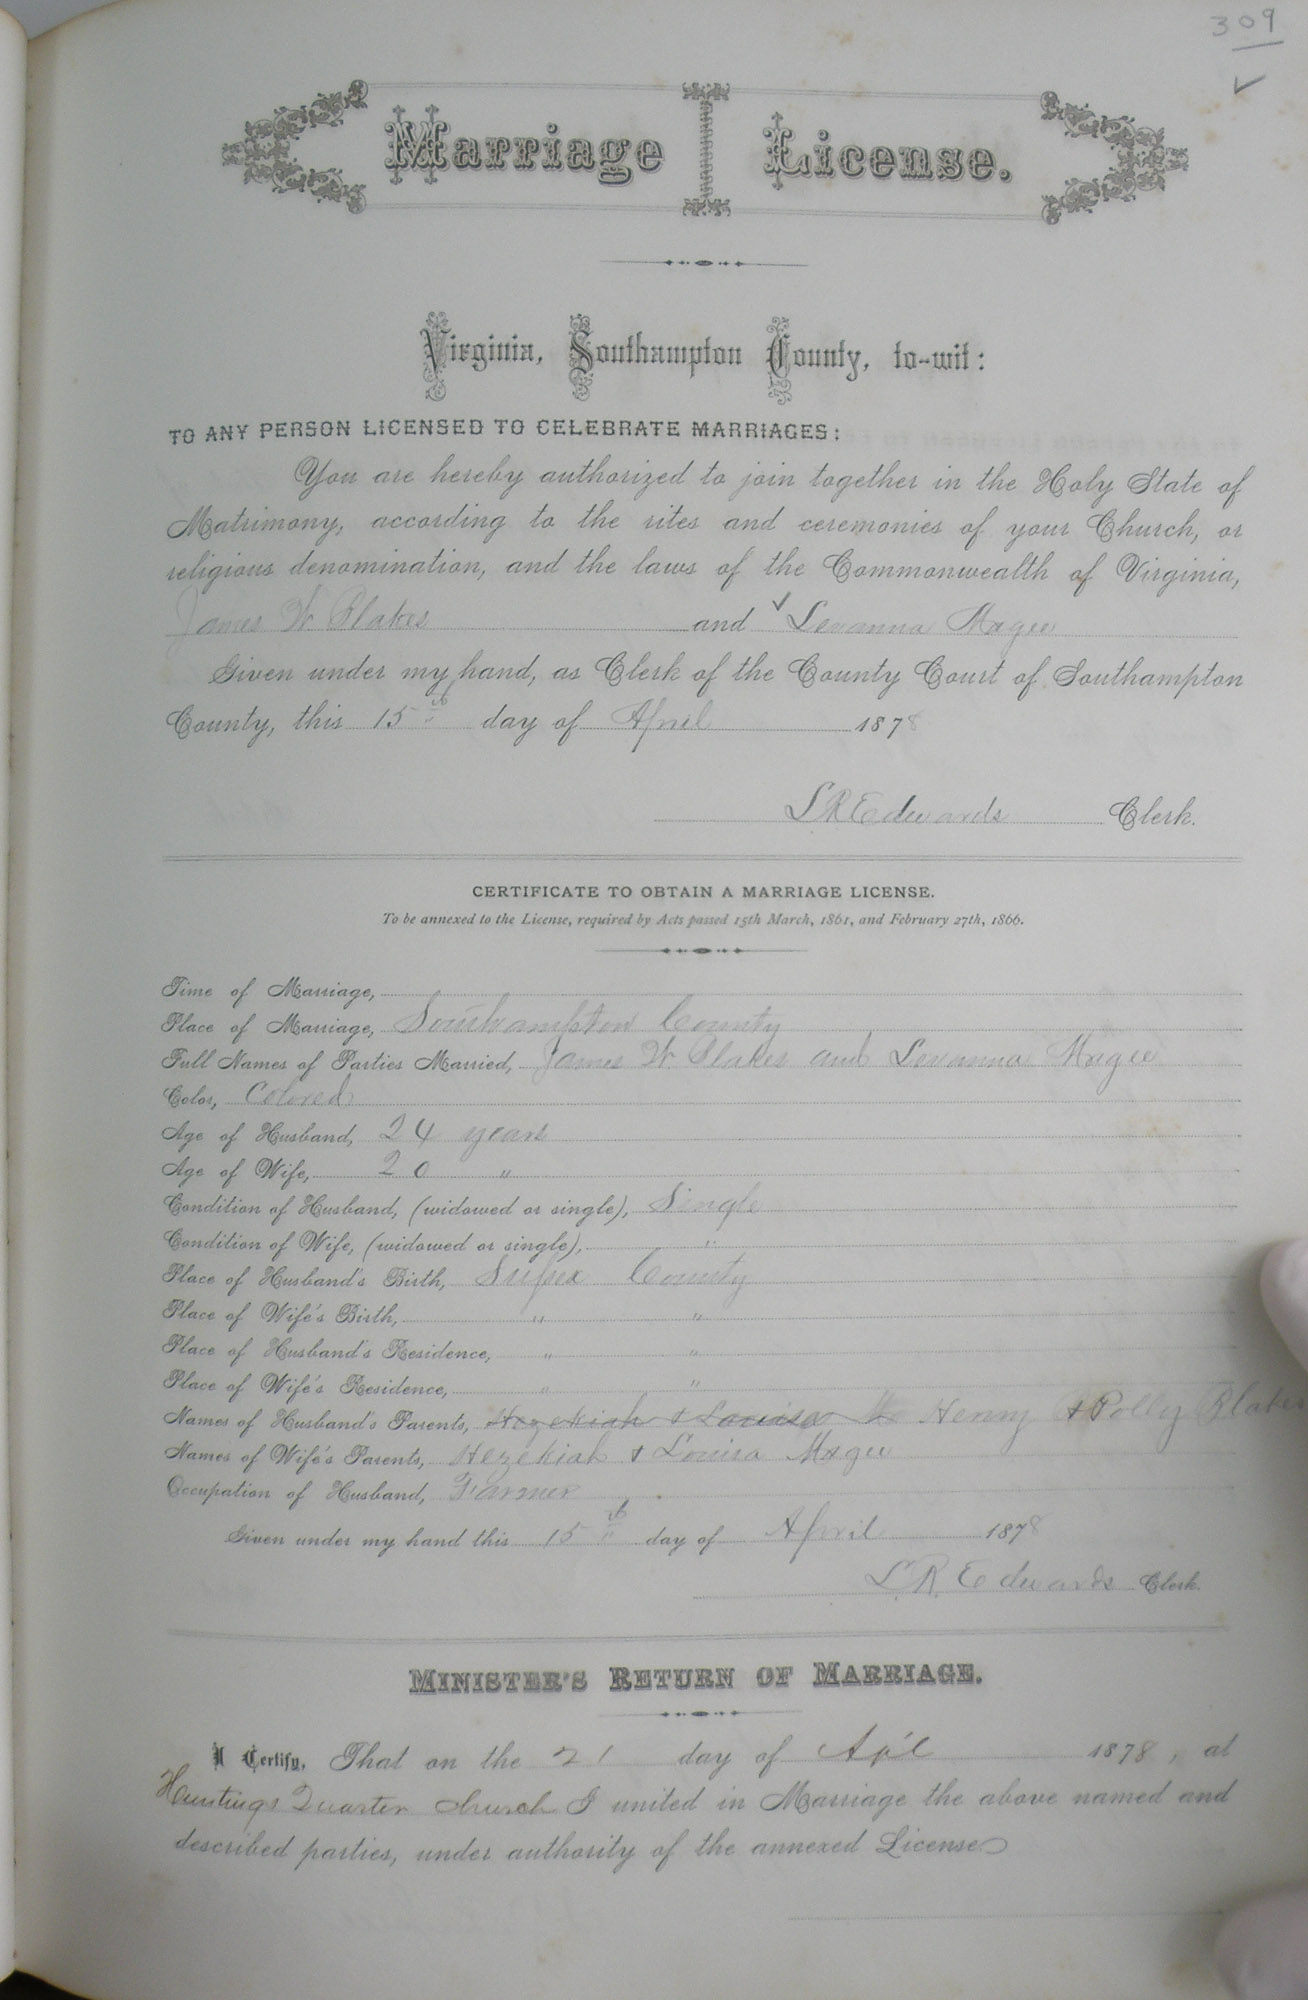 309
Marriage License.
Virginia, Southampton County, to-wit:
TO ANY PERSON LICENSED TO CELEBRATE MARRIAGES:
You are hereby authorized to join together in the Holy State of
Matrimony, according to the rites and ceremonies of your Church, or
religious denomination, and the laws of the Commonwealth of Virginia,
James W Blakes and Levanna Magee
Given under my hand, as Clerk of the County Court of Southampton
County, this 15th day of April 1878
L R Edwards Clerk.
CERTIFICATE TO OBTAIN A MARRIAGE LICENSE.
To be annexed to the License, required by Acts passed 15th March, 1861, and February 27th, 1866.
Time of Marriage,
Place of Marriage, Southampton County
Full Names of Parties Married, James W Blakes and Levanna Magee
Color, Colored
Age of Husband, 24 years
Age of Wife, 20 "
Condition of Husband, (widowed or single), Single
Condition of Wife, (widowed or single), "
Place of Husband's Birth, Sussex County
Place of Wife's Birth, " "
Place of Husband's Residence, " "
Place of Wife's Residence, " "
Names of Husband's Parents, Hezekiah & Louisa Ma Henry & Polly Blakes
Names of Wife's Parents, Hezekiah & Louisa Magee
Occupation of Husband, Farmer
Given under my hand this 15th day of April 1878
L. R. Edwards Clerk.
MINISTER'S RETURN OF MARRIAGE.
I Certify, That on the 21 day of Ap'l 1878, at
Huntings Quarter church I united in Marriage the above named and
described parties, under authority of the annexed License